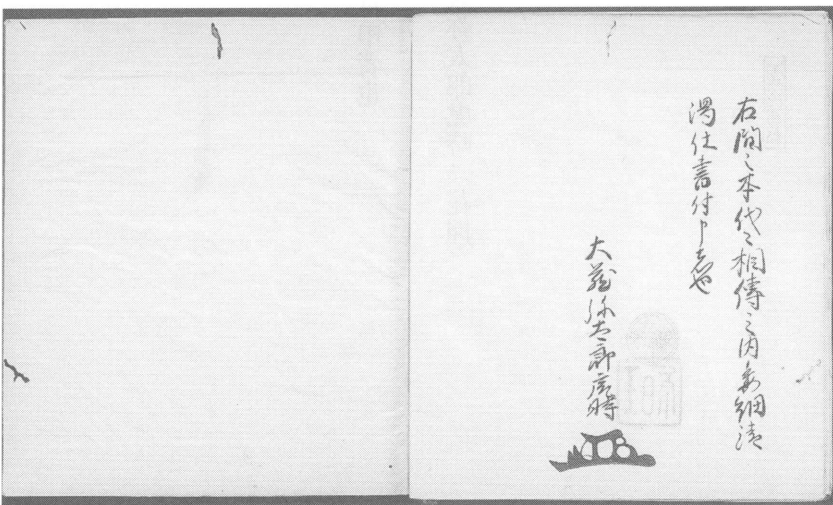 右間之本代々相傳之内委細清
濁仕書付申者也
大蔵弥太郎虎時